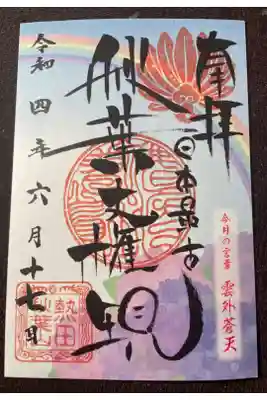 奉拝
日本最古
秋葉大権現
令和四年六月十七日
今月の言葉
雲外蒼天
熱田
秋葉山